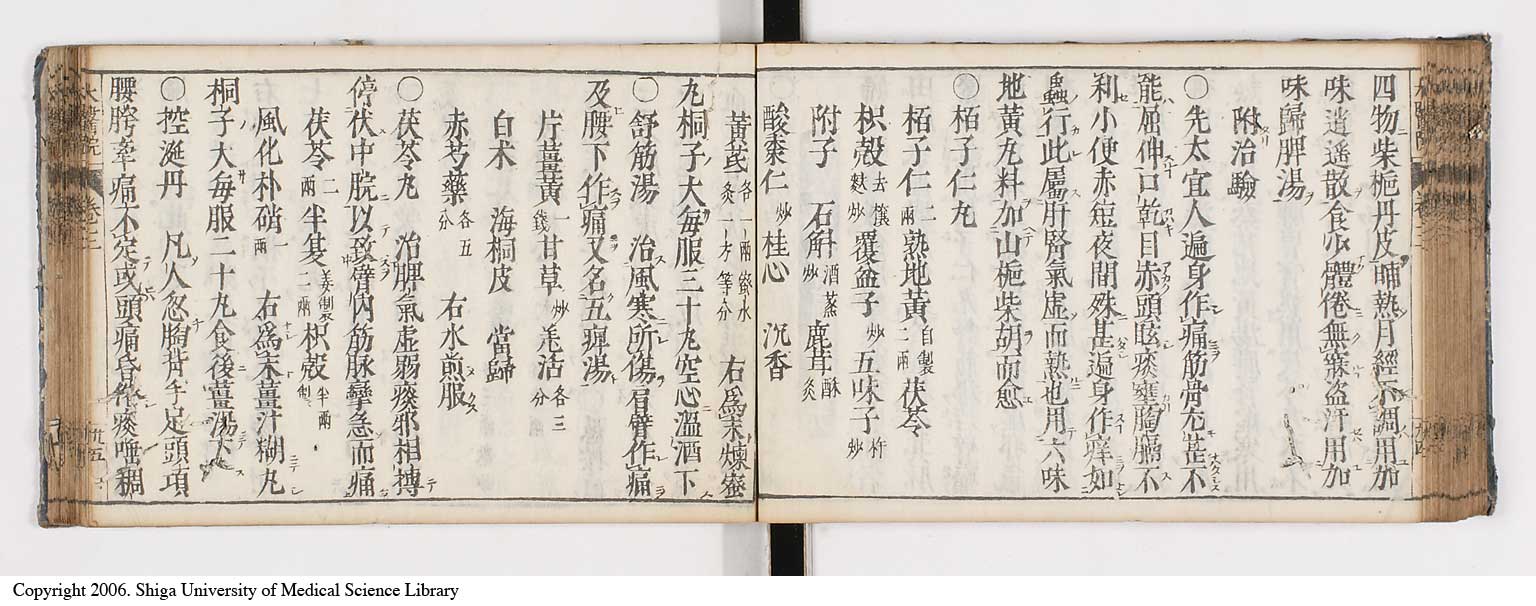 四物柴梔丹皮晡熱月經不調用加
味逍遥散食少體倦無寐盗汗用加
味歸脾湯
附治驗
〇先太宜人遍身作痛筋骨尤甚不
能屈伸口乾目赤頭眩痰壅胸膈不
利小便赤短夜間殊甚遍身作痒如
蟲行此屬肝腎氣虚而熱也用六味
地黄丸料加山梔柴胡而愈
〇栢子仁丸
栢子仁二兩 熟地黄自製二兩 茯苓
枳殻去穰麩炒 覆盆子炒 五味子炒
附子 石斛酒蒸炒 鹿茸酥灸
酸棗仁炒 桂心 沉香
黃芪 各一兩 右爲末煉蜜
丸桐子大毎服三十丸空心温酒下
〇舒筋湯 治風寒所傷肩臂作痛
及腰下作痛又名五痺湯
片薑黄一錢 甘草炒 羌活各三分
白术 海桐皮 當歸
赤芍藥各五分 右水煎服
〇茯苓丸 治脾氣虚弱痰邪相搏
停伏中脘以致臂内筋脉攣急而痛
茯苓二兩 半夏姜製二兩 枳殻半兩製
風化朴硝一兩 右爲末薑汁糊丸
桐子大毎服二十丸食後薑湯下
〇控涎丹 凡人忽胸背手足頭項
腰胯牽痛不定或頭痛昏作痰唾稠
Copyright 2006. Shiga University of Medical Science Library